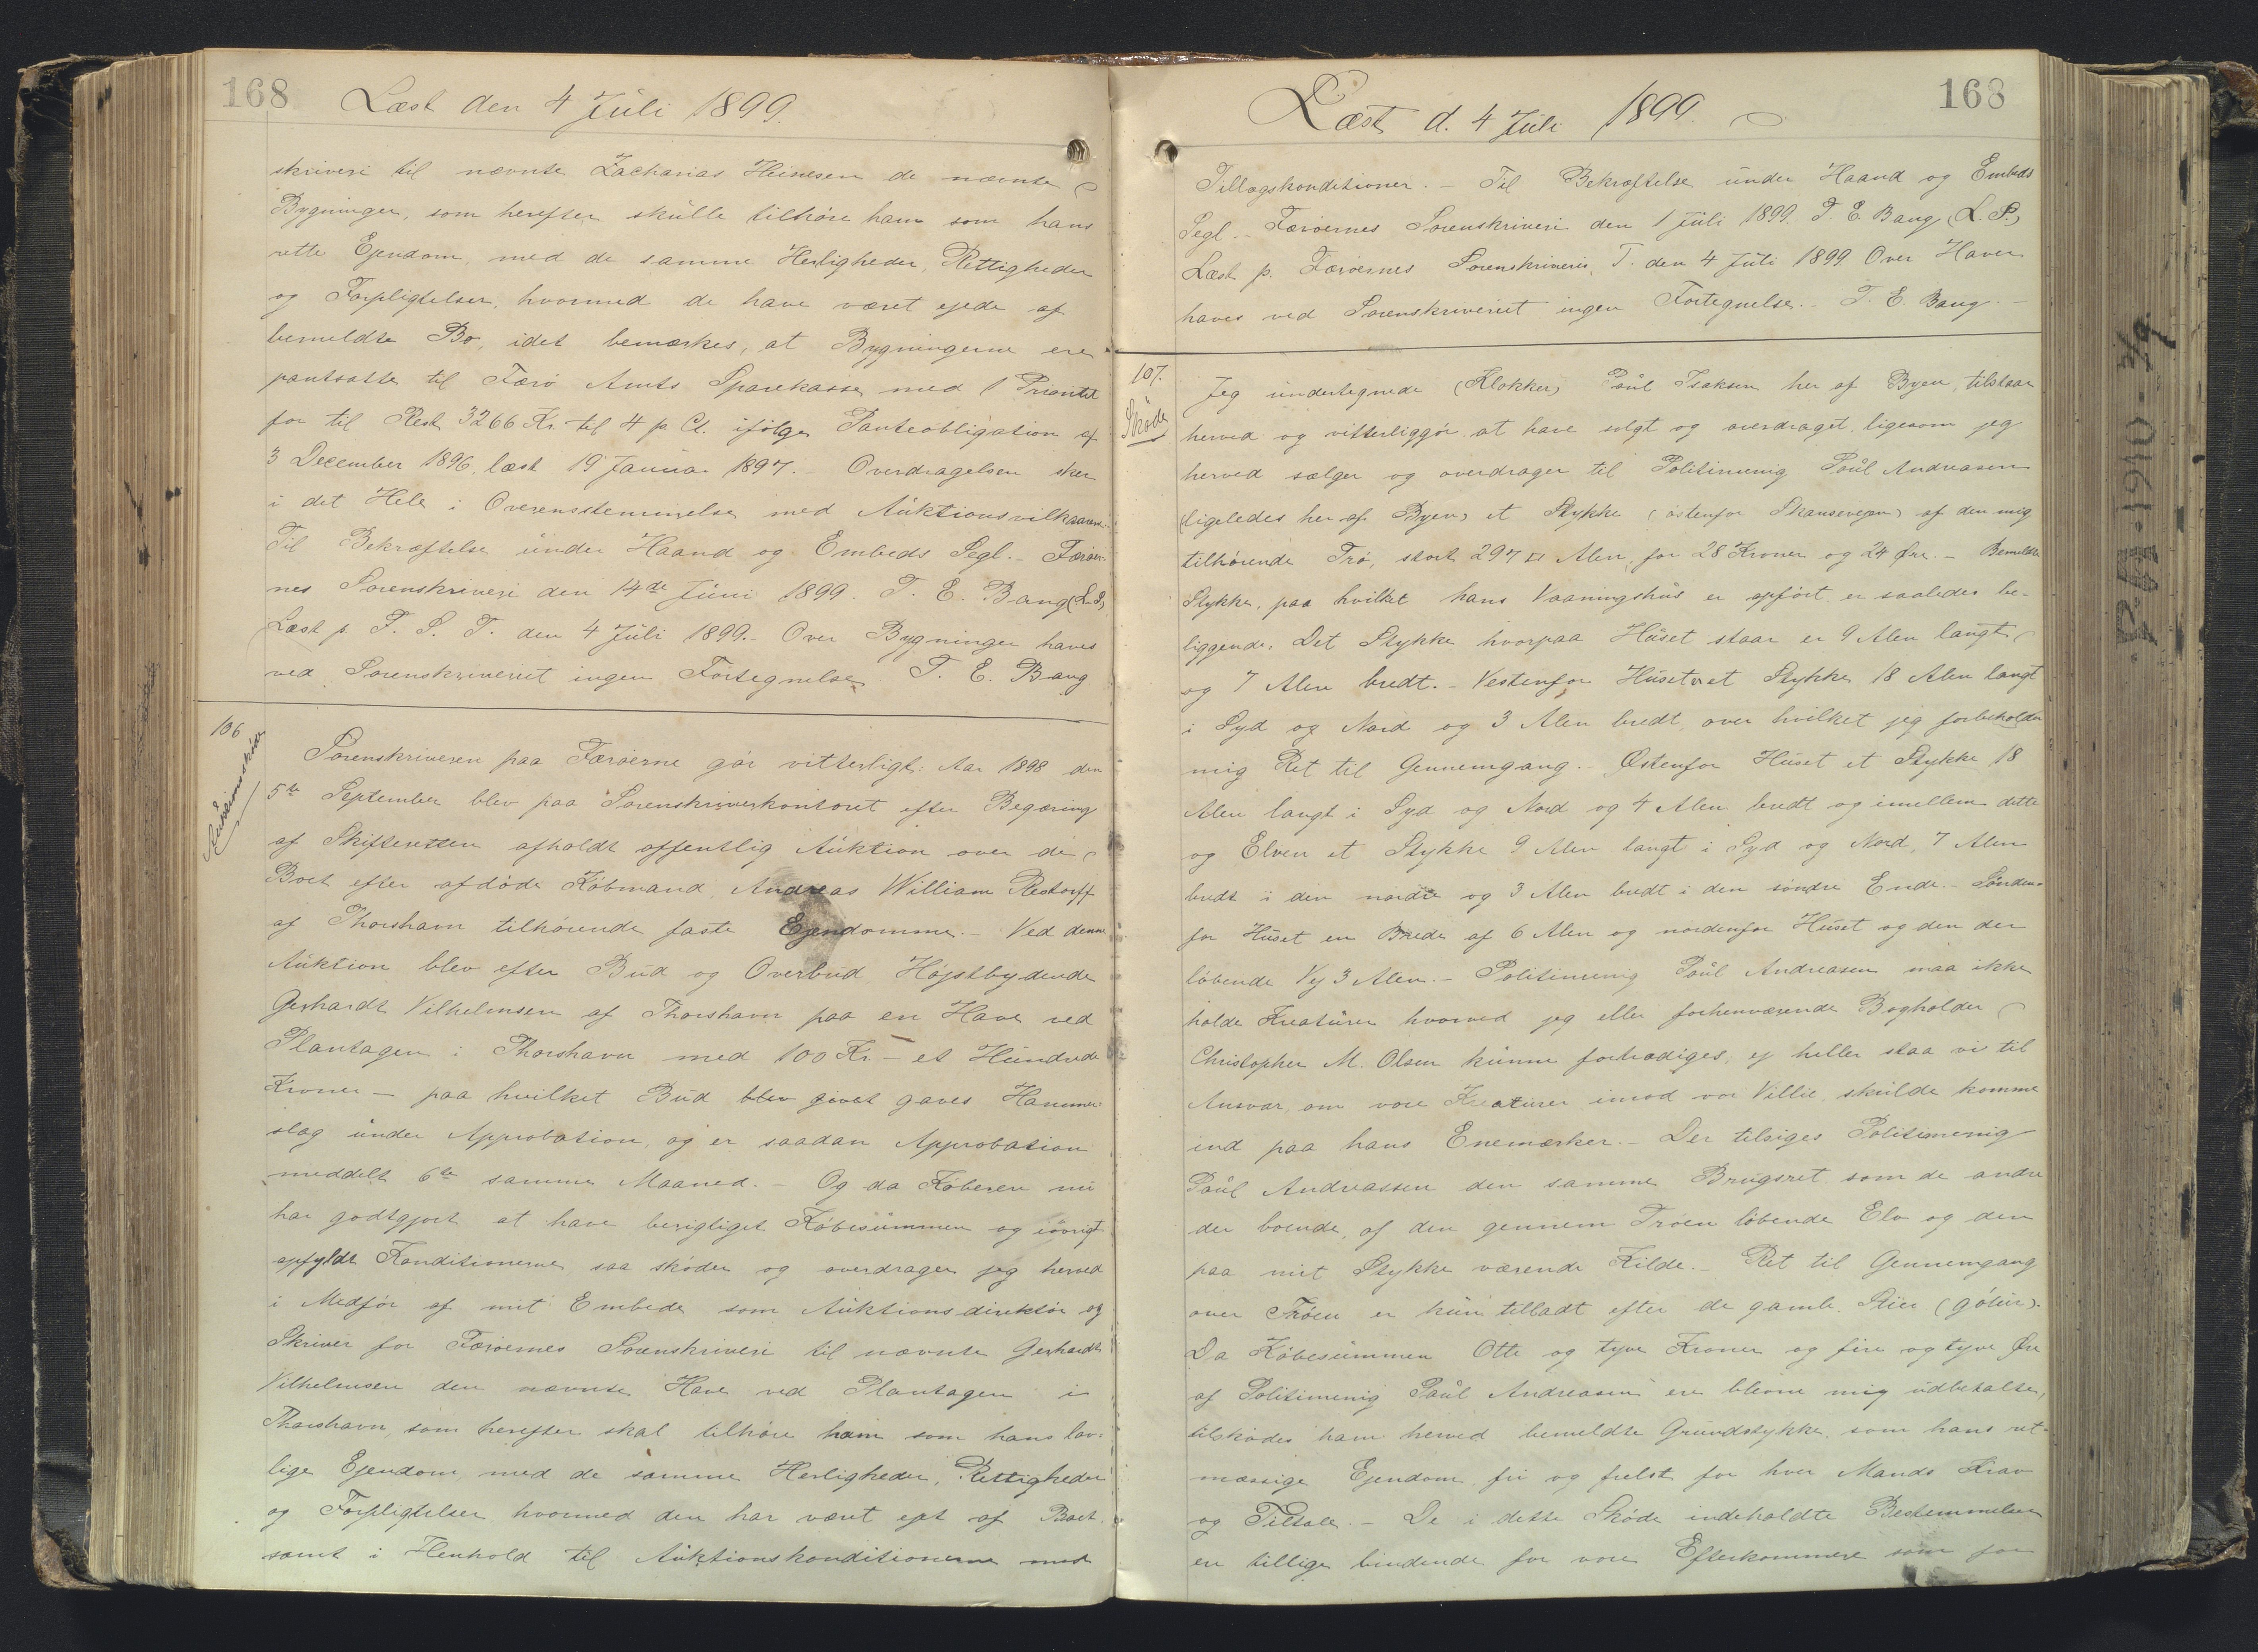 168
Læst den 4 Juli 1899.
skriveri til nævnte Zacharias Heinesen de nævnte
Bygninger, som herefter skulle tilhöre ham som hans
rette Ejendom med de samme Herligheder, Rettigheder
og Forpligtelser, hvormed de have været ejede af
bemeldte Bo, idet bemærkes, at Bygningerne ere
pantsatte til Færö Amts Sparekasse med 1 Prioritet
for til Rest 3266 Kr. til 4 p. Ct. ifölge Panteobligation af
3 December 1896, læst 19 Januar 1897. – Overdragelsen sker
i det Hele i Overensstemmelse med Auktionsvilkaarene.
Til Bekræftelse under Haand og Embeds Segl. – Færöer-
nes Sorenskriveri den 14de Juni 1899. T. E. Bang (L.S.)
Læst p. F. S. T. den 4 Juli 1899. – Over Bygninger haves
ved Sorenskriveriet ingen Fortegnelse T. E. Bang
106
Auktionsskjöde
Sorenskriveren paa Færöerne gör vitterligt: Aar 1898 den
5te September blev paa Sorenskriverkontoret efter Begæring
af Skifteretten afholdt offentlig Auktion over de
Boet efter afdöde Köbmand Andreas William Restorff
af Thorshavn tilhörende faste Ejendomme. – Ved denne
Auktion blev efter Bud og Overbud Höjstbydende
Gerhardt Vilhelmsen af Thorshavn paa en Have ved
Plantagen i Thorshavn med 100 Kr – et Hundrede
Kroner – paa hvilket Bud blev givet gaves Hammer-
slag under Approbation, og er saadan Approbation
meddelt 6te samme Maaned. – Og da Köberen nu
har godtgjort at have berigtiget Köbesummen og iövrigt
opfyldt Konditionerne, saa sköder og overdrager jeg herved
i Medför af mit Embede som Auktionsdirektör og
Skriver for Færöernes Sorenskriveri til nævnte Gerhardt
Vilhelmsen den nævnte Have ved Plantagen i
Thorshavn, som herefter skal tilhöre ham som hans lov-
lige Ejendom med de samme Herligheder, Rettigheder
og Forpligtelser hvormed den har været ejet af Boet
samt i Henhold til Auktionskonditionerne med
168
Læst d. 4 Juli 1899.
Tillægskonditioner. – Til Bekræftelse under Haand og Embeds
Segl. – Færöernes Sorenskriveri den 1 Juli 1899. T. E. Bang (L. S.)
Læst p. Færöernes Sorenskriveris T. den 4 Juli 1899 Over Haver
haves ved Sorenskriveriet ingen Fortegnelse. – T. E. Bang –
107.
Sköde
Jeg undertegnede (Klokker) Poul Isaksen her af Byen, tilstaar
herved og vitterliggör at have solgt og overdraget, ligesom jeg
herved sælger og overdrager til Politimenig Poul Andreasen
(ligeledes her af Byen) et Stykke (östenfor Skansevejen) af den mig
tilhörende Trö, stort 297 □ Alen, for 28 Kroner og 24 Öre. – Bemeldte
Stykke, paa hvilket hans Vaaningshus er opfört er saaledes be-
liggende: Det Stykke hvorpaa Huset staar er 9 Alen langt
og 7 Alen bredt. – Vestenfor Huset et Stykke 18 Alen langt
i Syd og Nord og 3 Alen bredt, over hvilket jeg forbeholder
mig Ret til Gennemgang. – Östenfor Huset et Stykke 18
Alen langt i Syd og Nord og 4 Alen bredt og imellem dette
og Elven et Stykke 9 Alen langt i Syd og Nord, 7 Alen
bredt i den nordre og 3 Alen bredt i den söndre Ende. – Sönden-
for Huset en Brede af 6 Alen og nordenfor Huset og den der
löbende Vej 3 Alen. – Politimenig Poul Andreasen maa ikke
holde Kreaturer hvorved jeg eller forhenværende Bogholder
Christopher M. Olsen kunne fortrædiges, ej heller staa vi til
Ansvar, om vore Kreaturer imod vor Villie, skulde komme
ind paa hans Enemærker. – Der tilsiges Politimenig
Poul Andreassen den samme Brugsret som de andre
der boende, af den gennem Tröen löbende Elv og den
paa mit Stykke værende Kilde. – Ret til Gennemgang
over Tröen er kun tilladt efter de gamle Stier (götur).
Da Köbesummen Otte og tyve Kroner og fire og tyve Öre
af Politimenig Poul Andreasen ere blevne mig udbetalte,
tilsködes ham herved bemeldte Grundstykke, som hans ret-
mæssige Ejendom fri og frelst for hver Mands Krav
og Tiltale. – De i dette Sköde indeholdte Bestemmelser
ere tillige bindende for vore Efterkommere som for